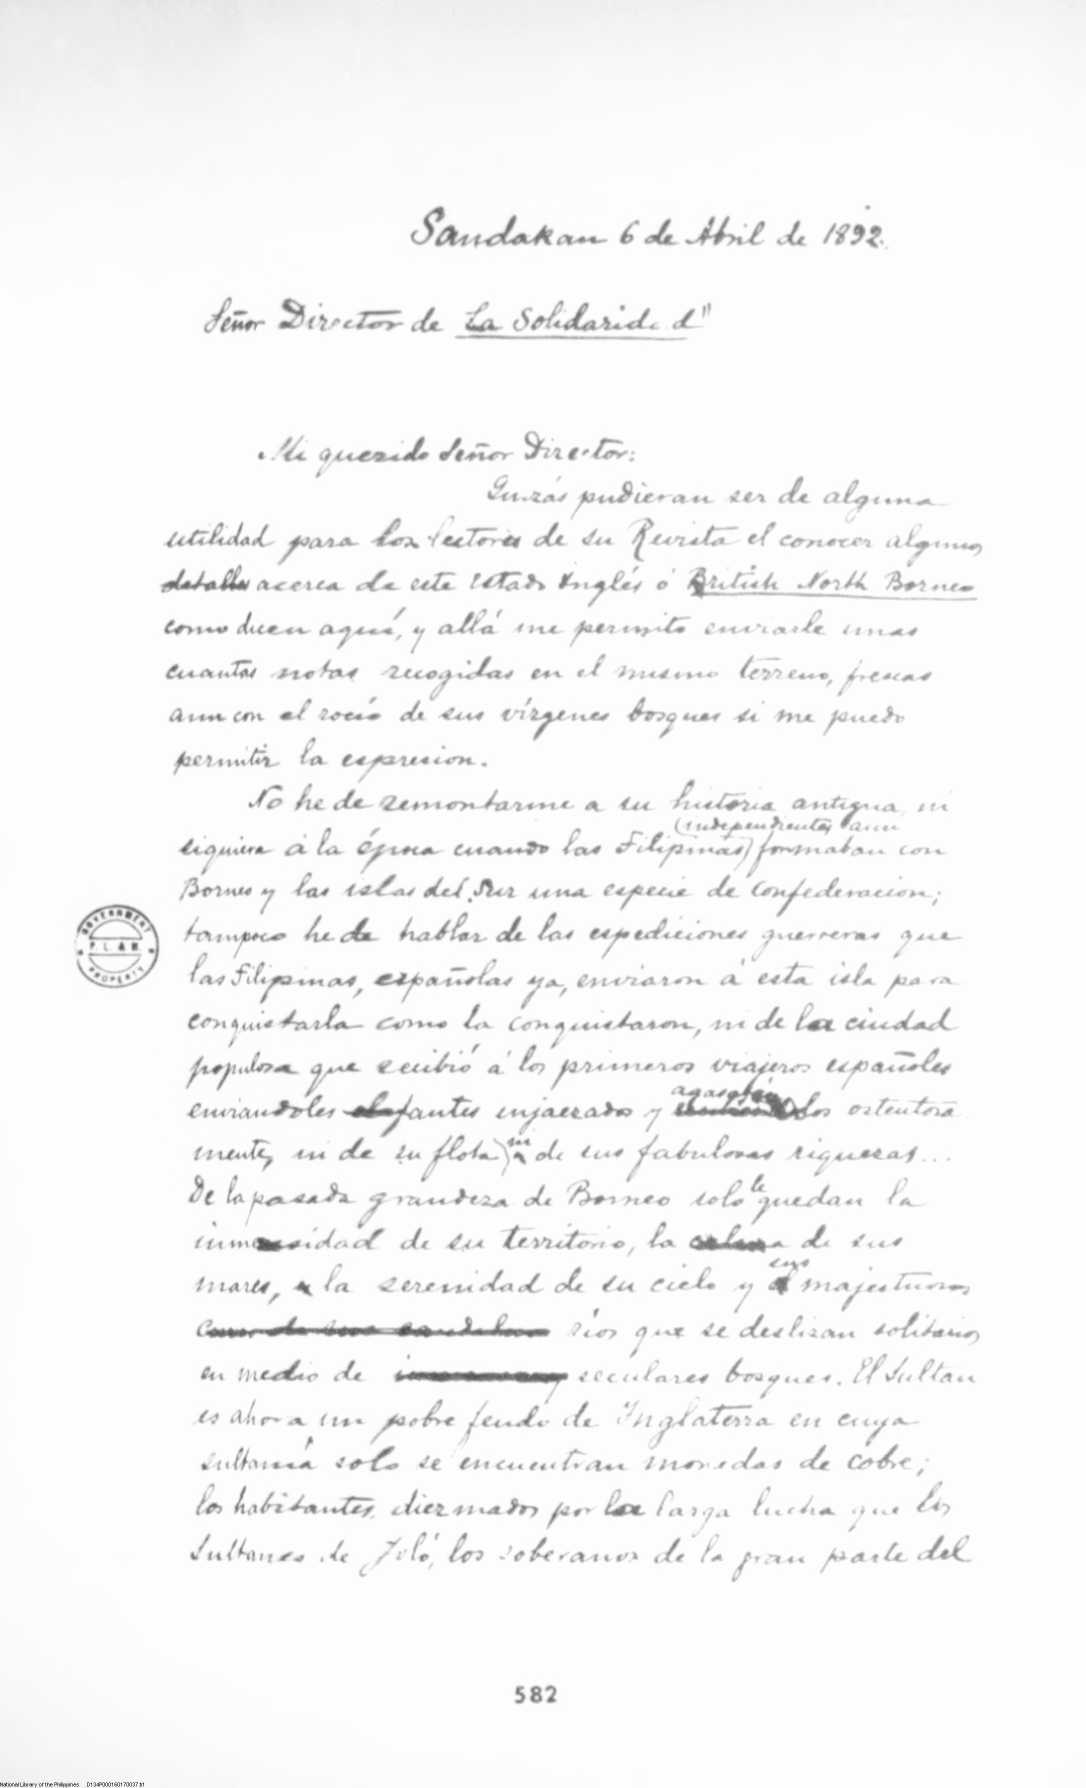 Sandakan 6 de Abril de 1892.
Señor Director de La Solidaridad"
Mi querido Señor Director:
Quizás pudieran ser de alguna
utilidad para los lectores de su Revista el conocer algunos
detalles acerca de este Estado Inglés ó British North Borneo
como dicen aquí, y allá me permito enviarle unas
cuantas notas recogidas en el mismo terreno, frescas
aun con el rocío de sus vírgenes bosques si me puedo
permitir la espresion.
No he de remontarme a su historia antigua, ni
(independientes aun
siquiera á la época cuando las Filipinas) formaban con
Borneo y las islas del Sur una especie de Confederacion;
tampoco he de hablar de las espediciones guerreras que
las Filipinas, españolas ya, enviaron á esta isla para
conquistarla como la conquistaron, ni de la ciudad
populosa que recibió á los primeros viajeros españoles
enviandoles elefantes enjaezados y los ostentosa
mente, ni de su flota, ni de sus fabulosas riquezas...
De la pasada grandeza de Borneo solo le quedan la
inmensidad de su territorio, la de sus
mares, la serenidad de su cielo y sus majestuosos
rios que se deslizan solitarios
en medio de seculares bosques. El Sultan
es ahora un pobre feudo de Inglaterra en cuya
sultanía solo se encuentran monedas de cobre;
los habitantes, diezmados por la larga lucha que los
Sultanes de Joló, los soberanos de la gran parte del
GOVERNMENT
PROPERTY
582
National Library of the Philippines D134P000160170037.tif